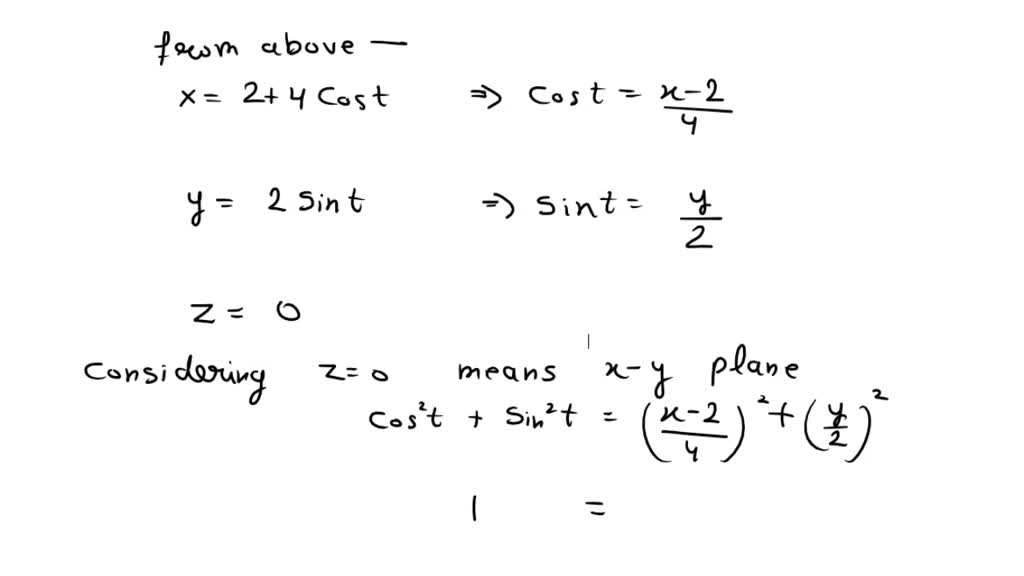 from above —
x = 2+4 Cost ⇒ Cost = x-2/4
y = 2 Sint ⇒ Sint = y/2
z = 0
Considering z=0 means x-y plane
Cos²t + Sin²t = (x-2/4)² + (y/2)²
1 =